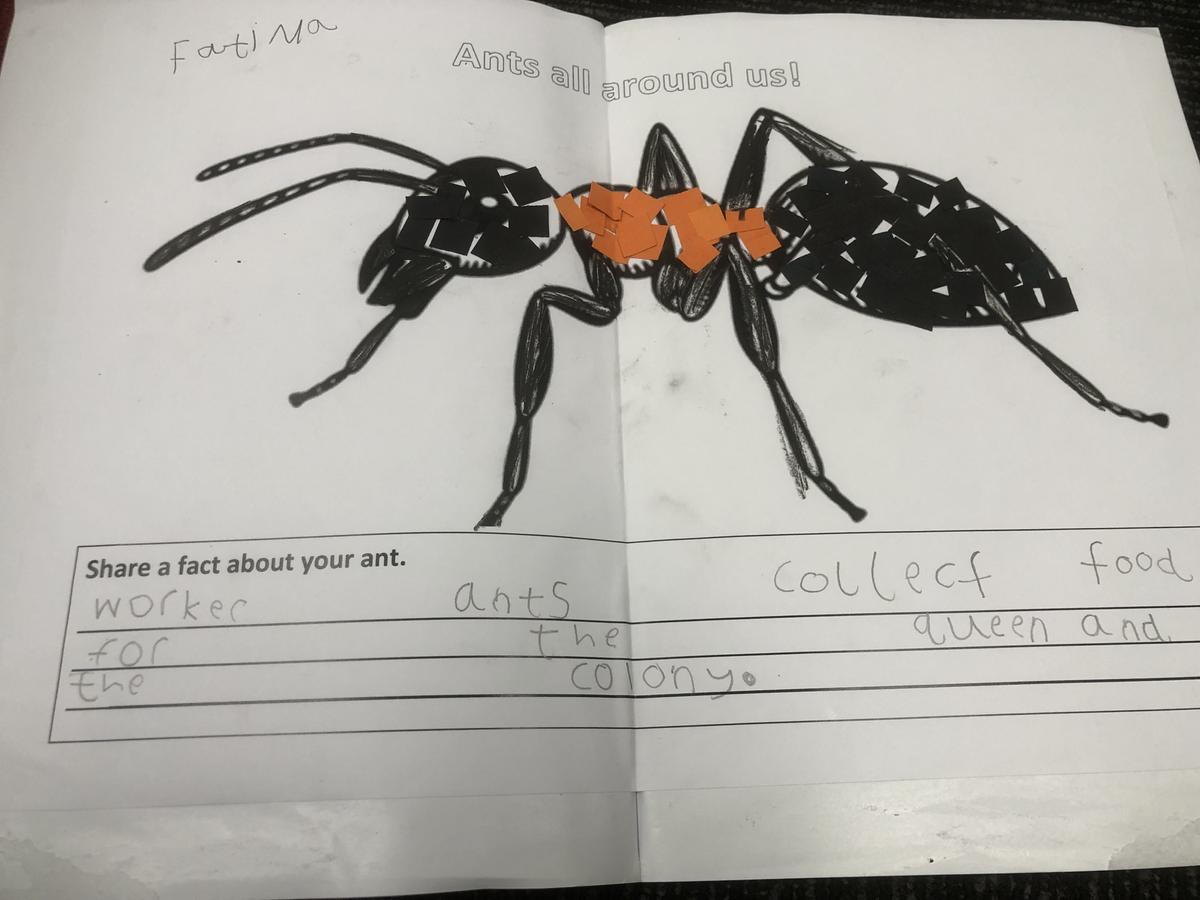 Fatima
Ants all around us!
Share a fact about your ant.
worker ants collect food
for the queen and
the colony.